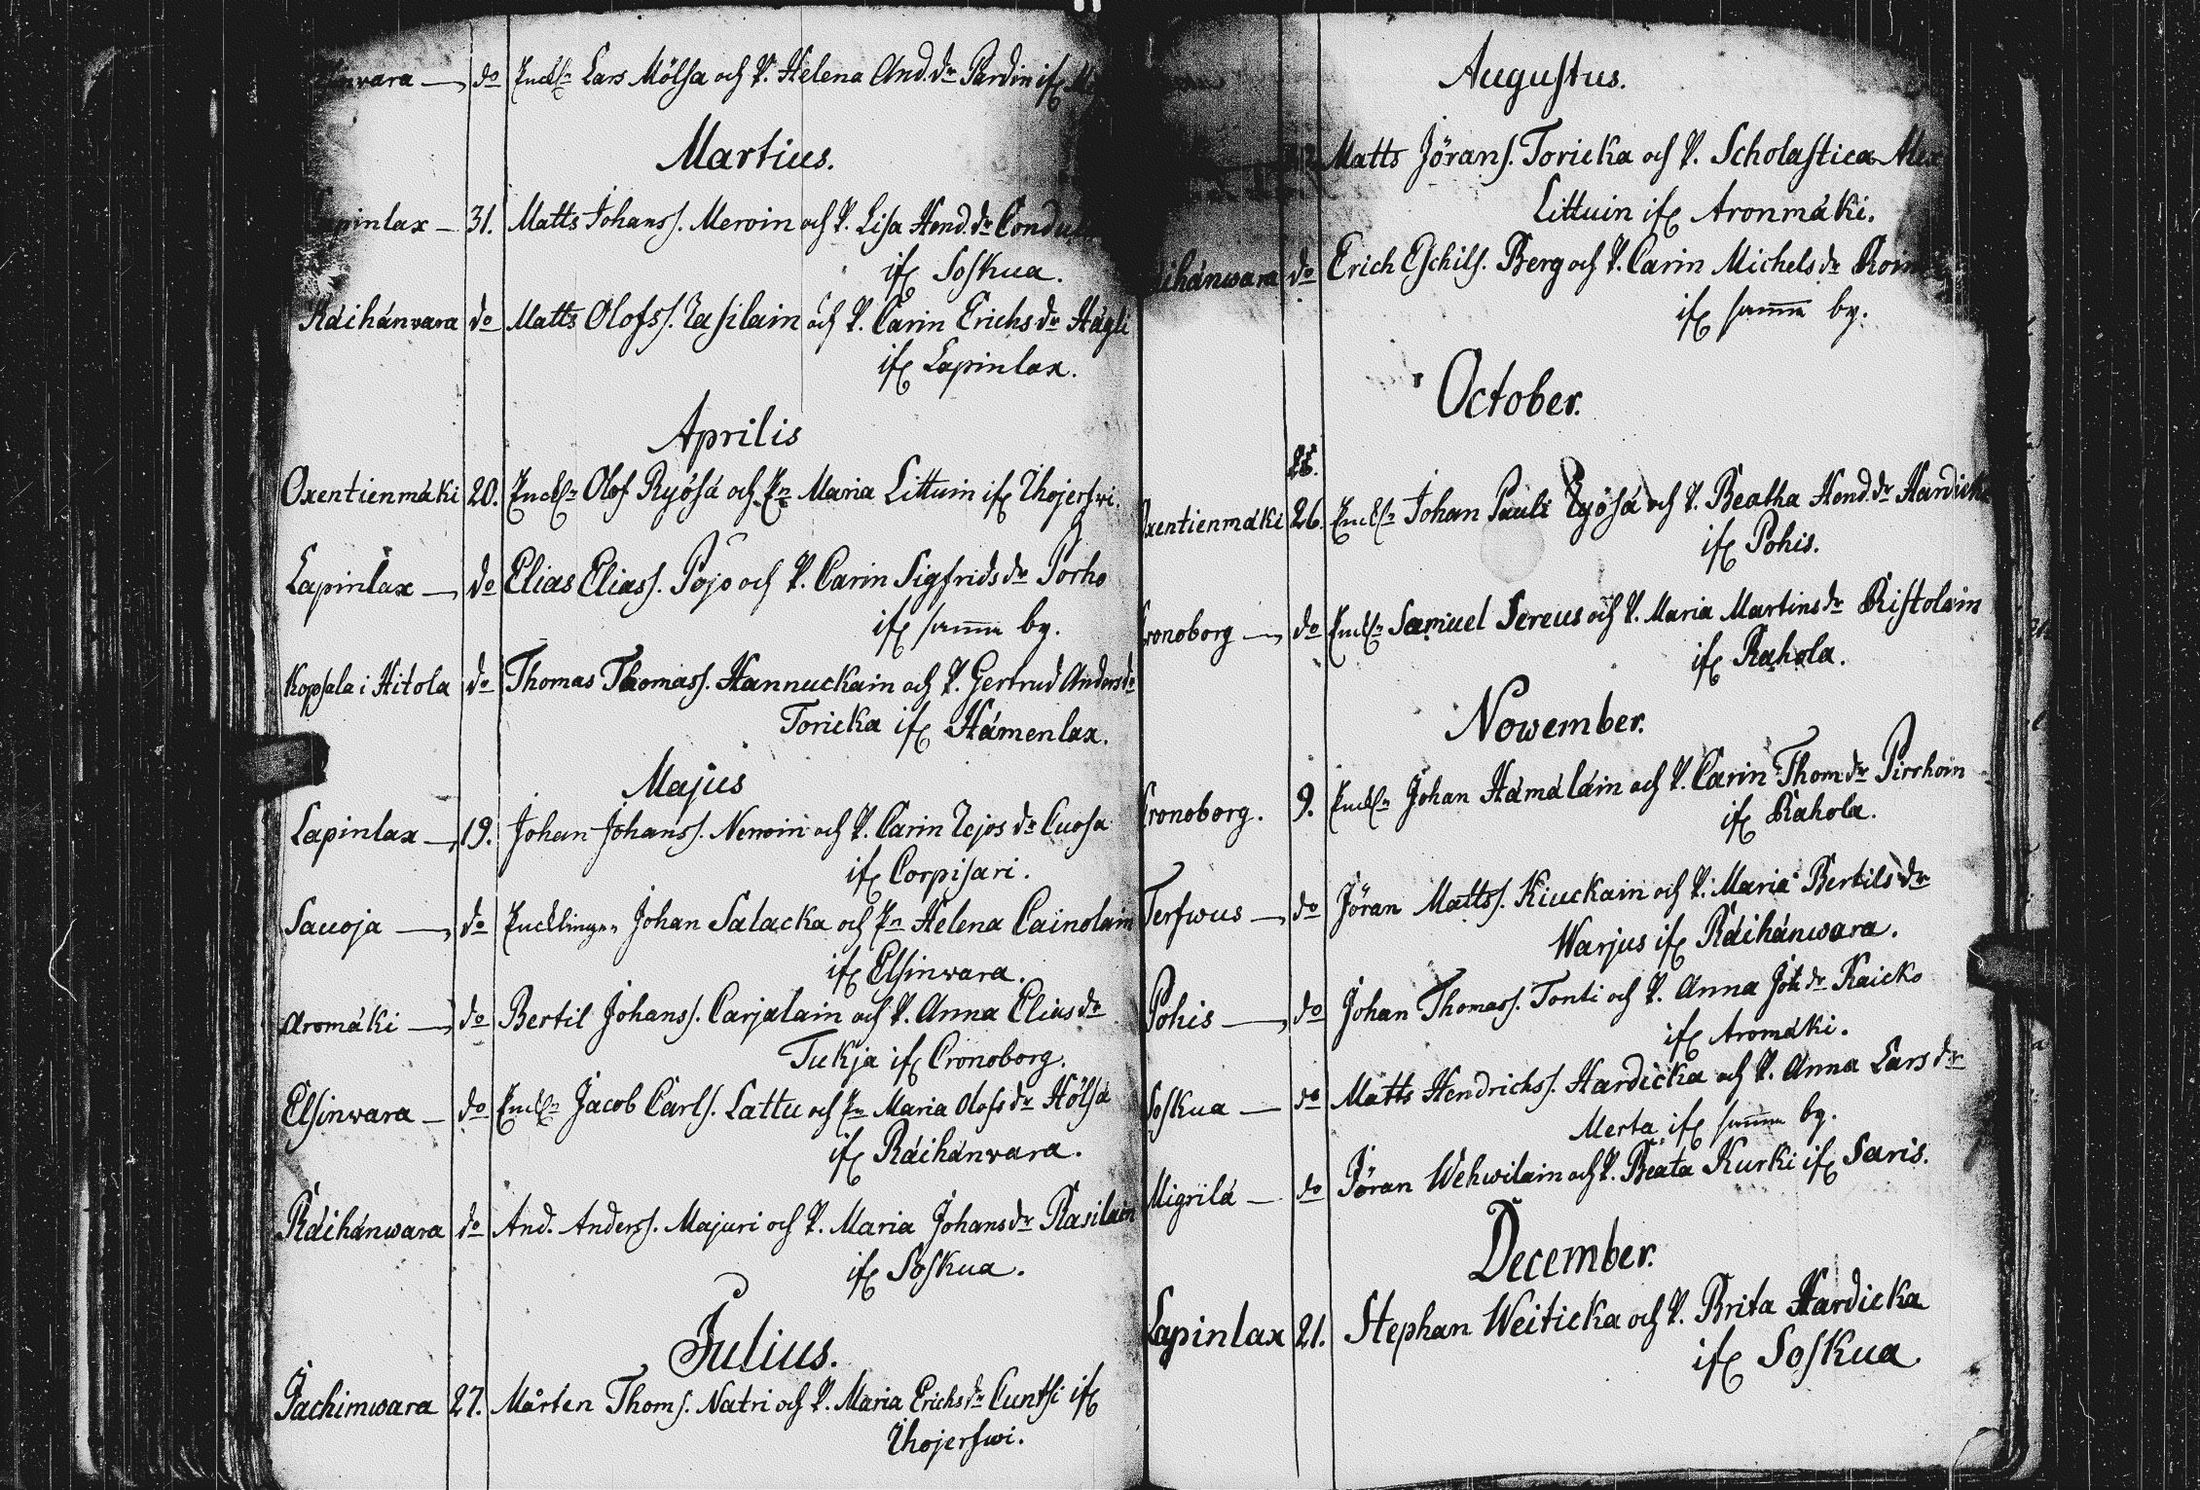 nwara — do Enckl:n Lars Mölsa och P. Helena And.dr Pardin ifr
Martius.
pinlax — 31. Matts Johans s. Meroin och P. Lisa Hend.dr
ifr Soskua.
Räihänwara do Matts Olofs s. Rasilain och P. Carin Erichs dr
ifr Lapinlax.
Aprilis
Oxentienmäki 20. Enckl:n Olof Ryösä och En: Maria Littuin ifr Ihojerfwi.
Lapinlax — do Elias Elias s. Pojo och P. Carin Sigfrids dr Porho
ifr samma by.
Kopsala i Hitola do Thomas Thomas s. Hannuckain och P. Gertrud Anders dr
Toricka ifr Hämenlax.
Majus
Lapinlax — 19. Johan Johans s. Neuvoin och P. Carin Yrjös dr Cuosa
ifr Corpisari.
Sauoja — do Encklingn Johan Salacka och En Helena Cainolain
ifr Elsinwara.
Aromäki — do Bertil Johans s. Carjalain och P. Anna Elias dr
Tukja ifr Cronoborg.
Elsinwara — do Enckl:n Jacob Carl s. Lattu och En Maria Olofs dr Hölsä
ifr Räihänwara.
Räihänwara do And. Anders s. Majuri och P. Maria Johans dr Rasilain
ifr Soskua.
Julius.
Jachimwara 27. Mårten Thom s. Natri och P. Maria Erichs dr Cuntsi ifr
Ihojerfwi.
Augustus.
Matts Jörans s. Toricka och P. Scholastica
Littuin ifr Aronmäki.
ihänwara do Erich Eschils s. Berg och P. Carin Michels dr
ifr samma by.
October.
26.
xentienmäki 26. Enckl:n Johan Pauli Ryösä och P. Beatha Hend.dr
ifr Pohis.
ronoborg — do Enckl:n Samuel Sereus och P. Maria Martins dr Ristolain
ifr Rahola.
Nowember.
Cronoborg. 9. Enckl:n Johan Hämäläin och P. Carin Thom dr Pirrhoin
ifr Rahola.
Terfwus — do Jöran Matts s. Kiuckain och P. Maria Bertils dr
Warjus ifr Räihänwara.
Pohis — do Johan Thomas s. Tonti och P. Anna Joh dr Raicko
ifr Aromäki.
Soskua — do Matts Hendrichs s. Hardicka och P. Anna Lars dr
Merta ifr samma by.
Migrilä — do Jöran Wehwilain och P. Beata Kurki ifr Saris.
December.
Lapinlax 21. Stephan Weiticka och P. Brita Hardicka
ifr Soskua